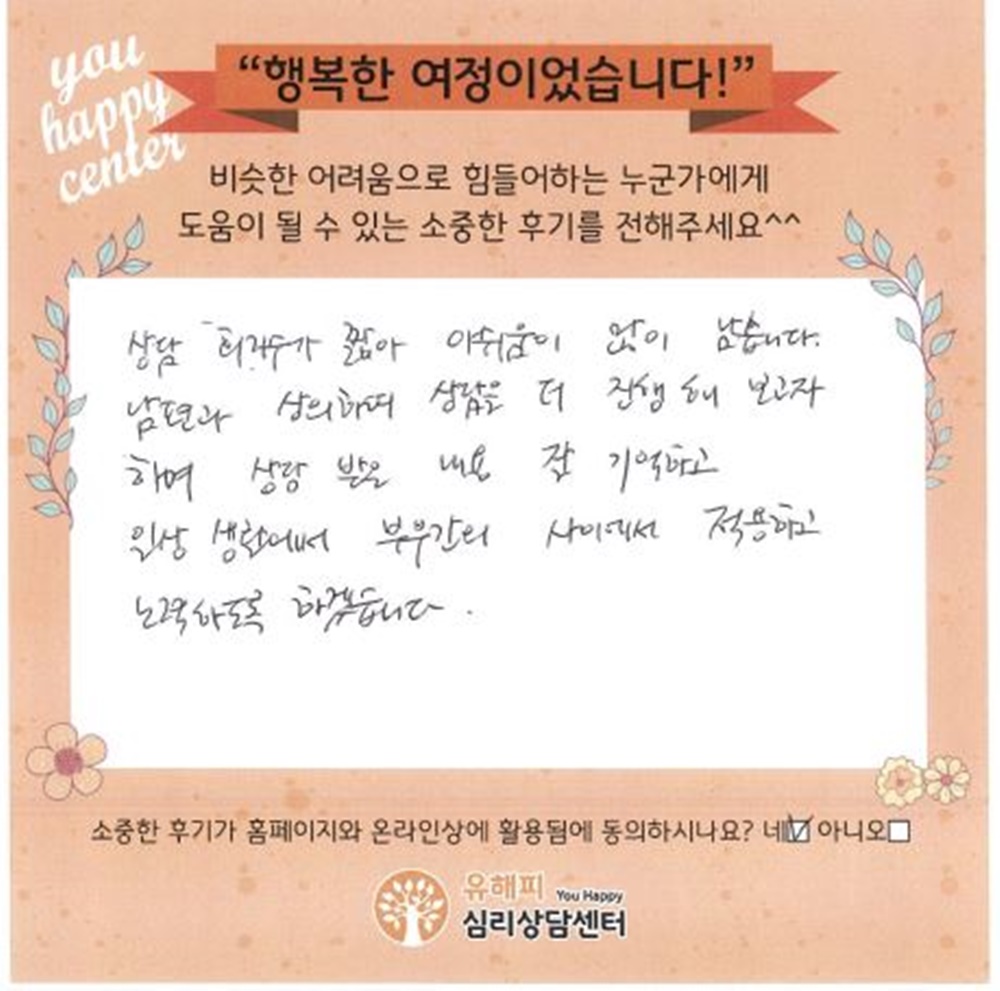 you
happy
center
“행복한 여정이었습니다!”
비슷한 어려움으로 힘들어하는 누군가에게
도움이 될 수 있는 소중한 후기를 전해주세요^^
상담 회기수가 짧아 아쉬움이 많이 남습니다.
남편과 상의하며 상담을 더 진행 해 보고자
하며 상담 받은 내용 잘 기억하고
일상 생활에서 부부간의 사이에서 적용하고
노력하도록 하겠습니다.
소중한 후기가 홈페이지와 온라인상에 활용됨에 동의하시나요? 네☑ 아니오☐
유해피 You Happy
심리상담센터